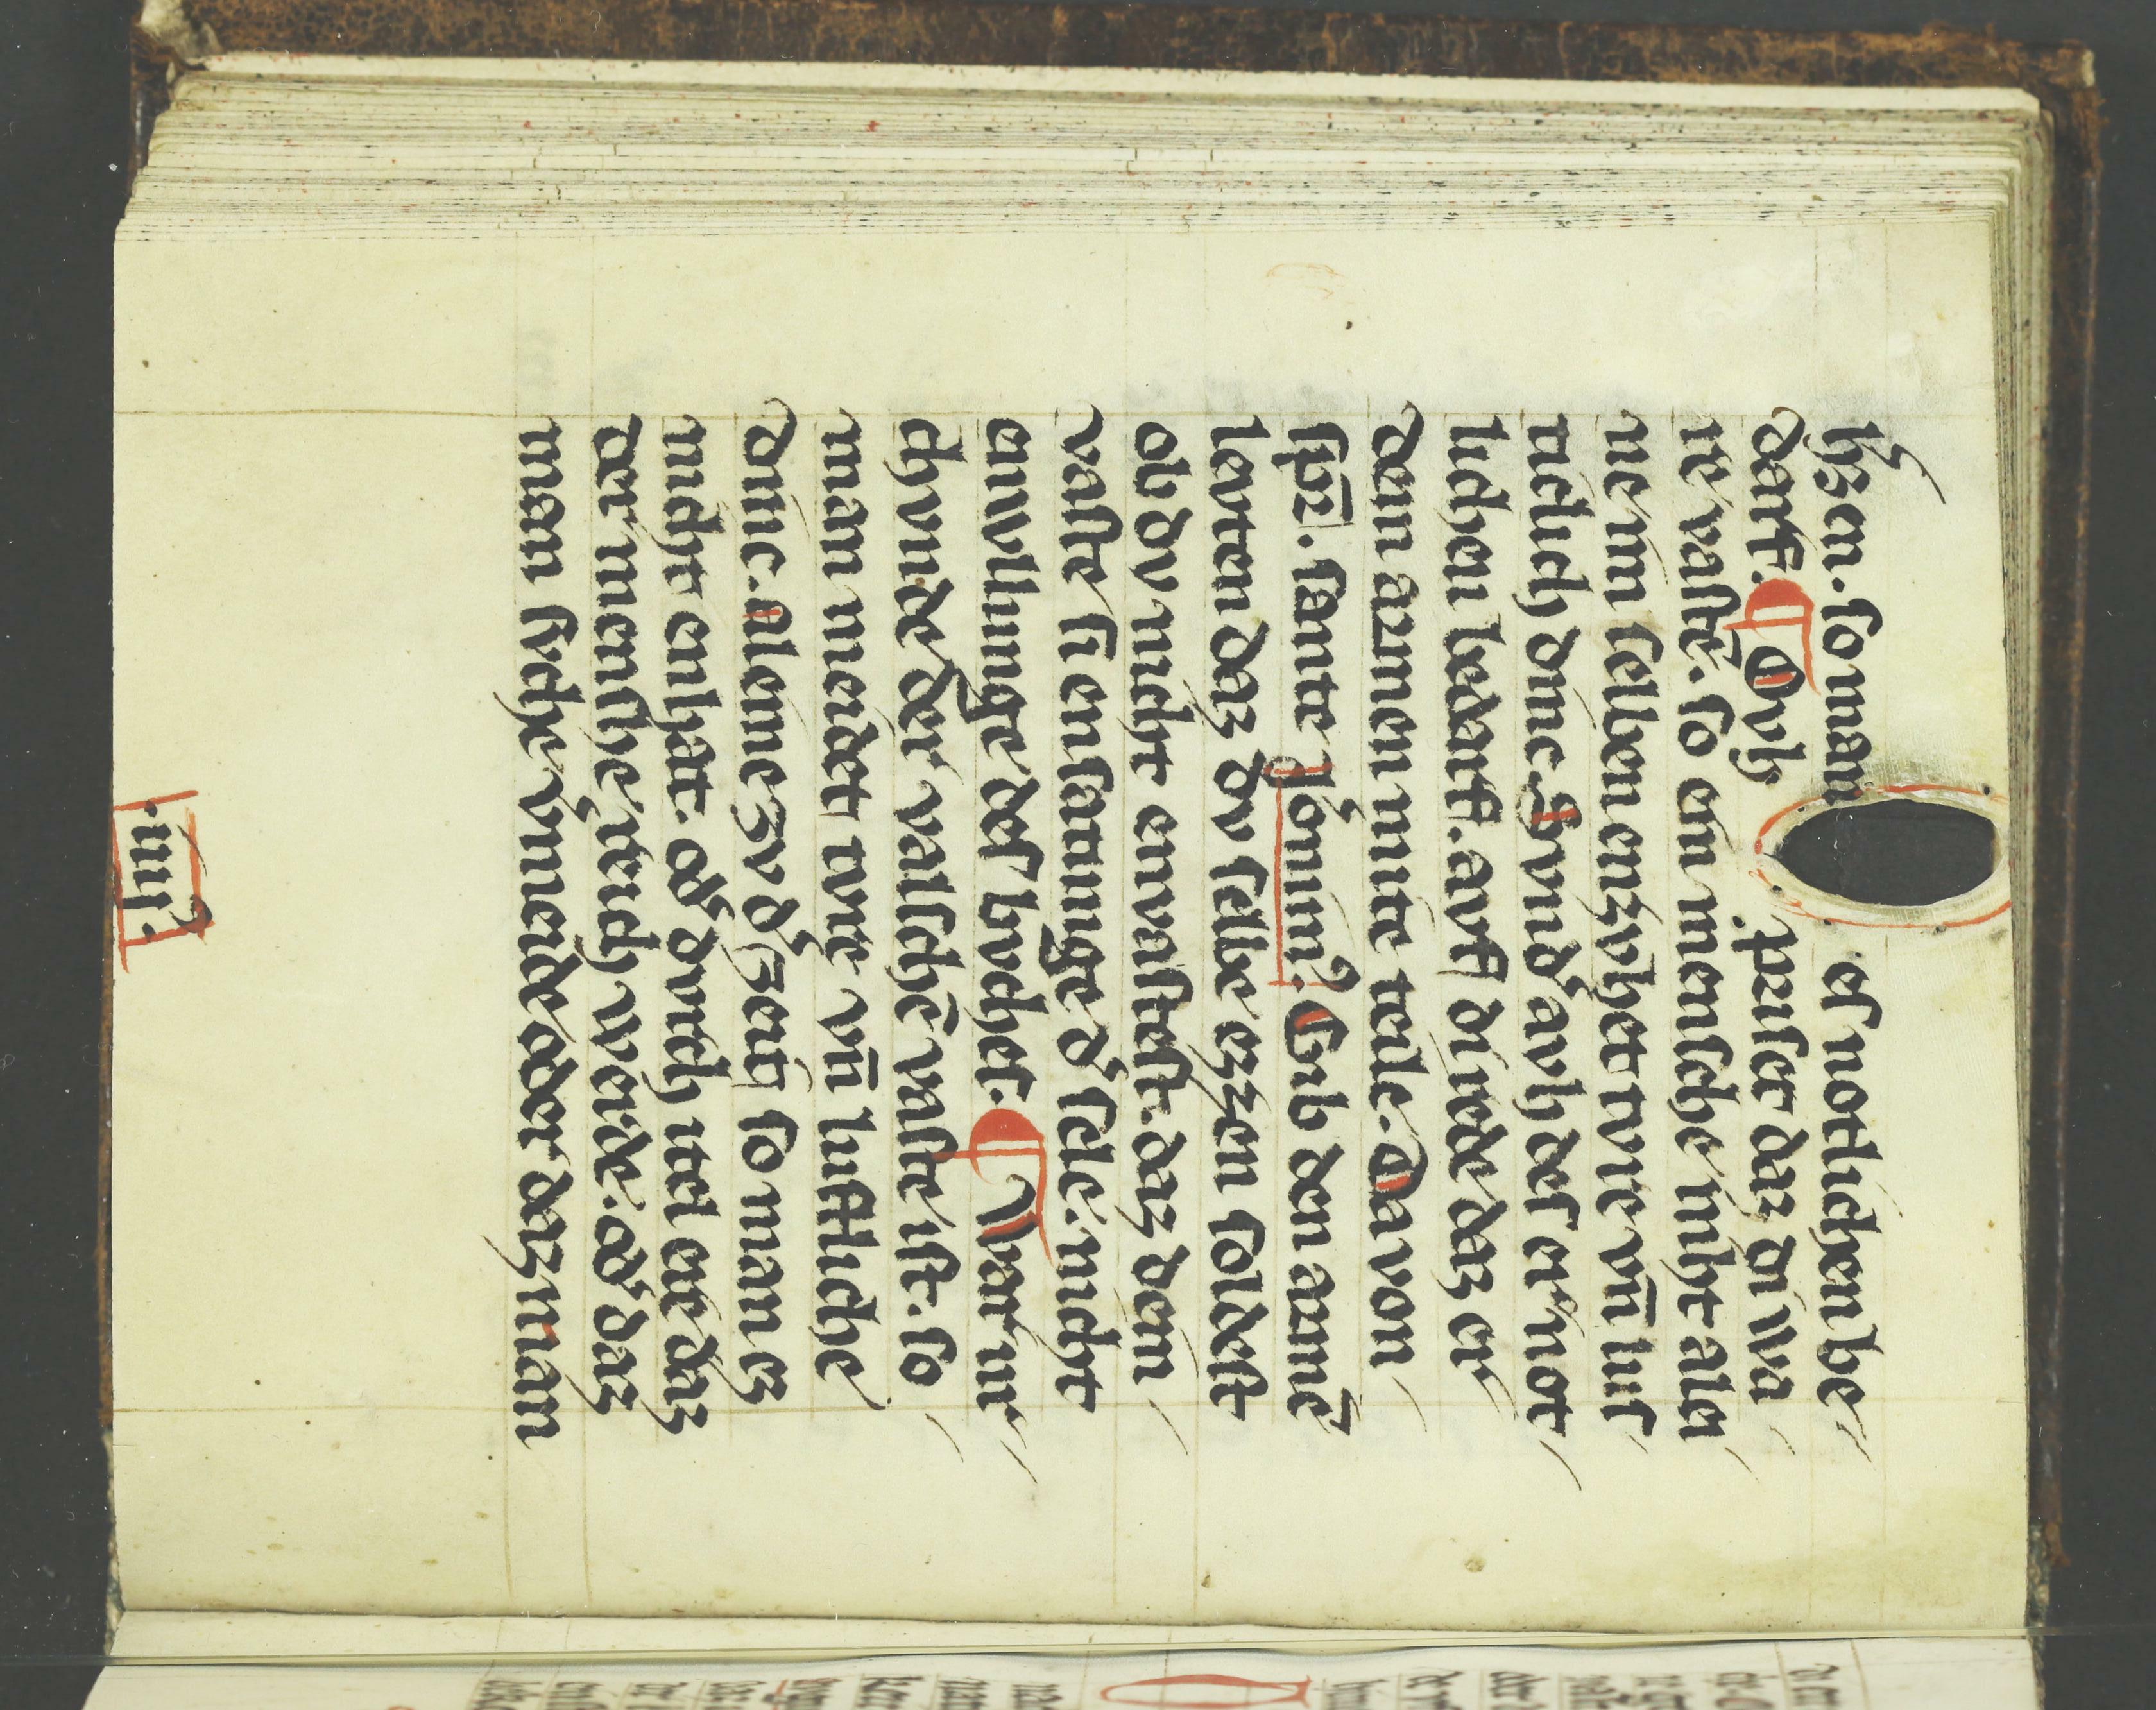 hzen. so man es notlichen be
darff. ¶ Ovch peiser daz di wa
re vastē. so ein mensche niht alei
ne im selben enzvhet tvre vn̄ lus
tlich dinc. Svnd͛ avh des er not
lichen bedarff. avff di rede daz er
den armen mite teile. Davon
sp̄c. sante Jeronimꝰ. Gib den armē
levten daz dv selbe ezzen soldest
ob dv nicht envastest. daz dem
vaste si ein satunge d͛ sele. nicht
ein wllunge des bvches. ¶ War nr
chvnde der valschē vaste ist. so
man meidet tvre vn̄ lustliche
dinc. aleine zv d͛ zeit so man ez
nicht enhat. od͛ dvrch itel ere daz
der mensche reich werde. od͛ daz
man siche vmeide oder daz man
.iiijꝰ.